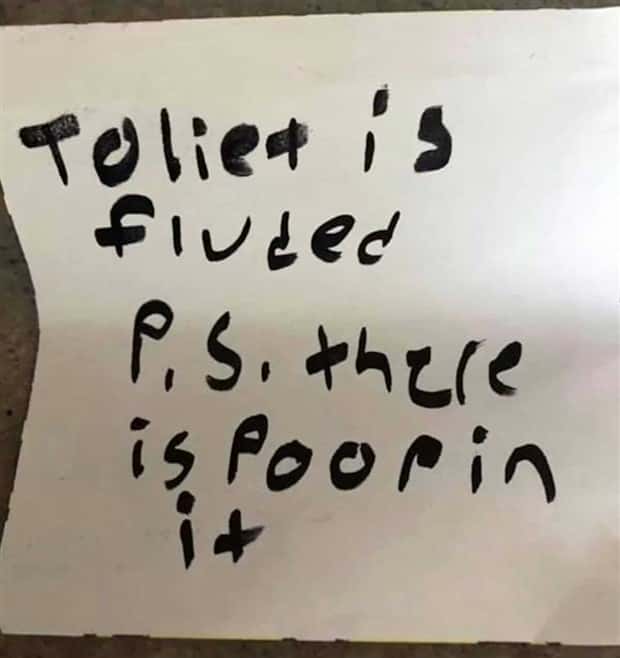 Toliet is
fluded
P.S. there
is Poop in
it